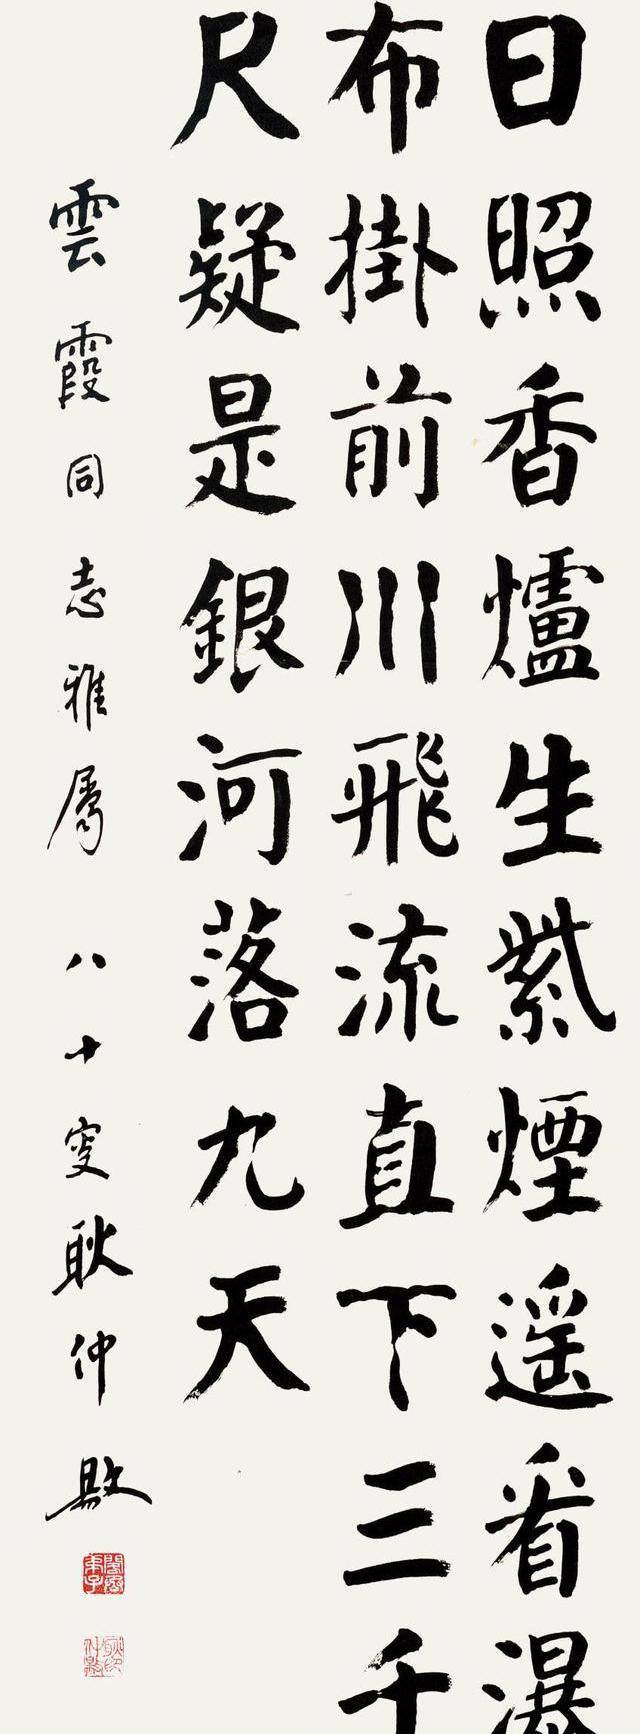 日照香爐生紫煙遥看瀑
布掛前川飛流直下三千
尺疑是銀河落九天
雲霞同志雅屬 八十叟耿仲敭